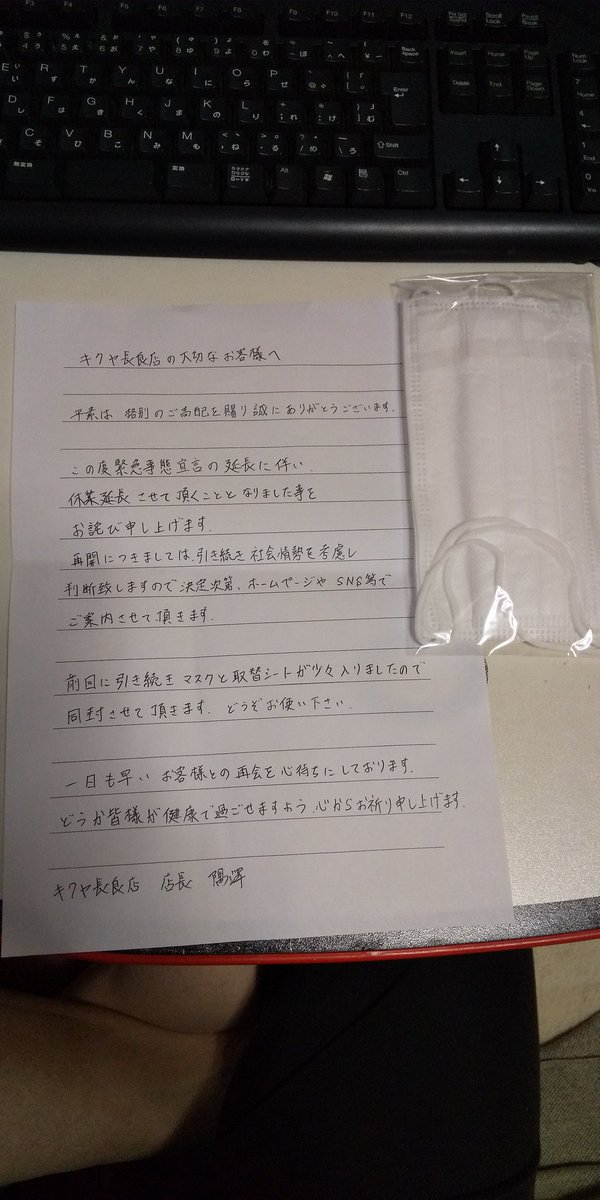 F3 F9 F10 F11 F12 Prt Scr SysRq Scroll Lock Pause Break
Back space Insert Home Page Up Num Lock
E R T Y U I O P Enter Delete End Page Down
D F G H J K L
C V B N M Shift
無変換 変換 カタカナ ひらがな ローマ字 Alt Ctrl
キクヤ長良店の大切なお客様へ
平素は格別のご高配を賜り誠にありがとうございます.
この度緊急事態宣言の延長に伴い.
休業延長させて頂くこととなりました事を
お詫び申し上げます.
再開につきましては、引き続き社会情勢を考慮し
判断致しますので決定次第、ホームページやSNS等で
ご案内させて頂きます.
前回に引き続きマスクと取替シートが少々入りましたので
同封させて頂きます. どうぞお使い下さい.
一日も早いお客様との再会を心待ちにしております.
どうか皆様が健康で過ごせますよう.心からお祈り申し上げます.
キクヤ長良店 店長